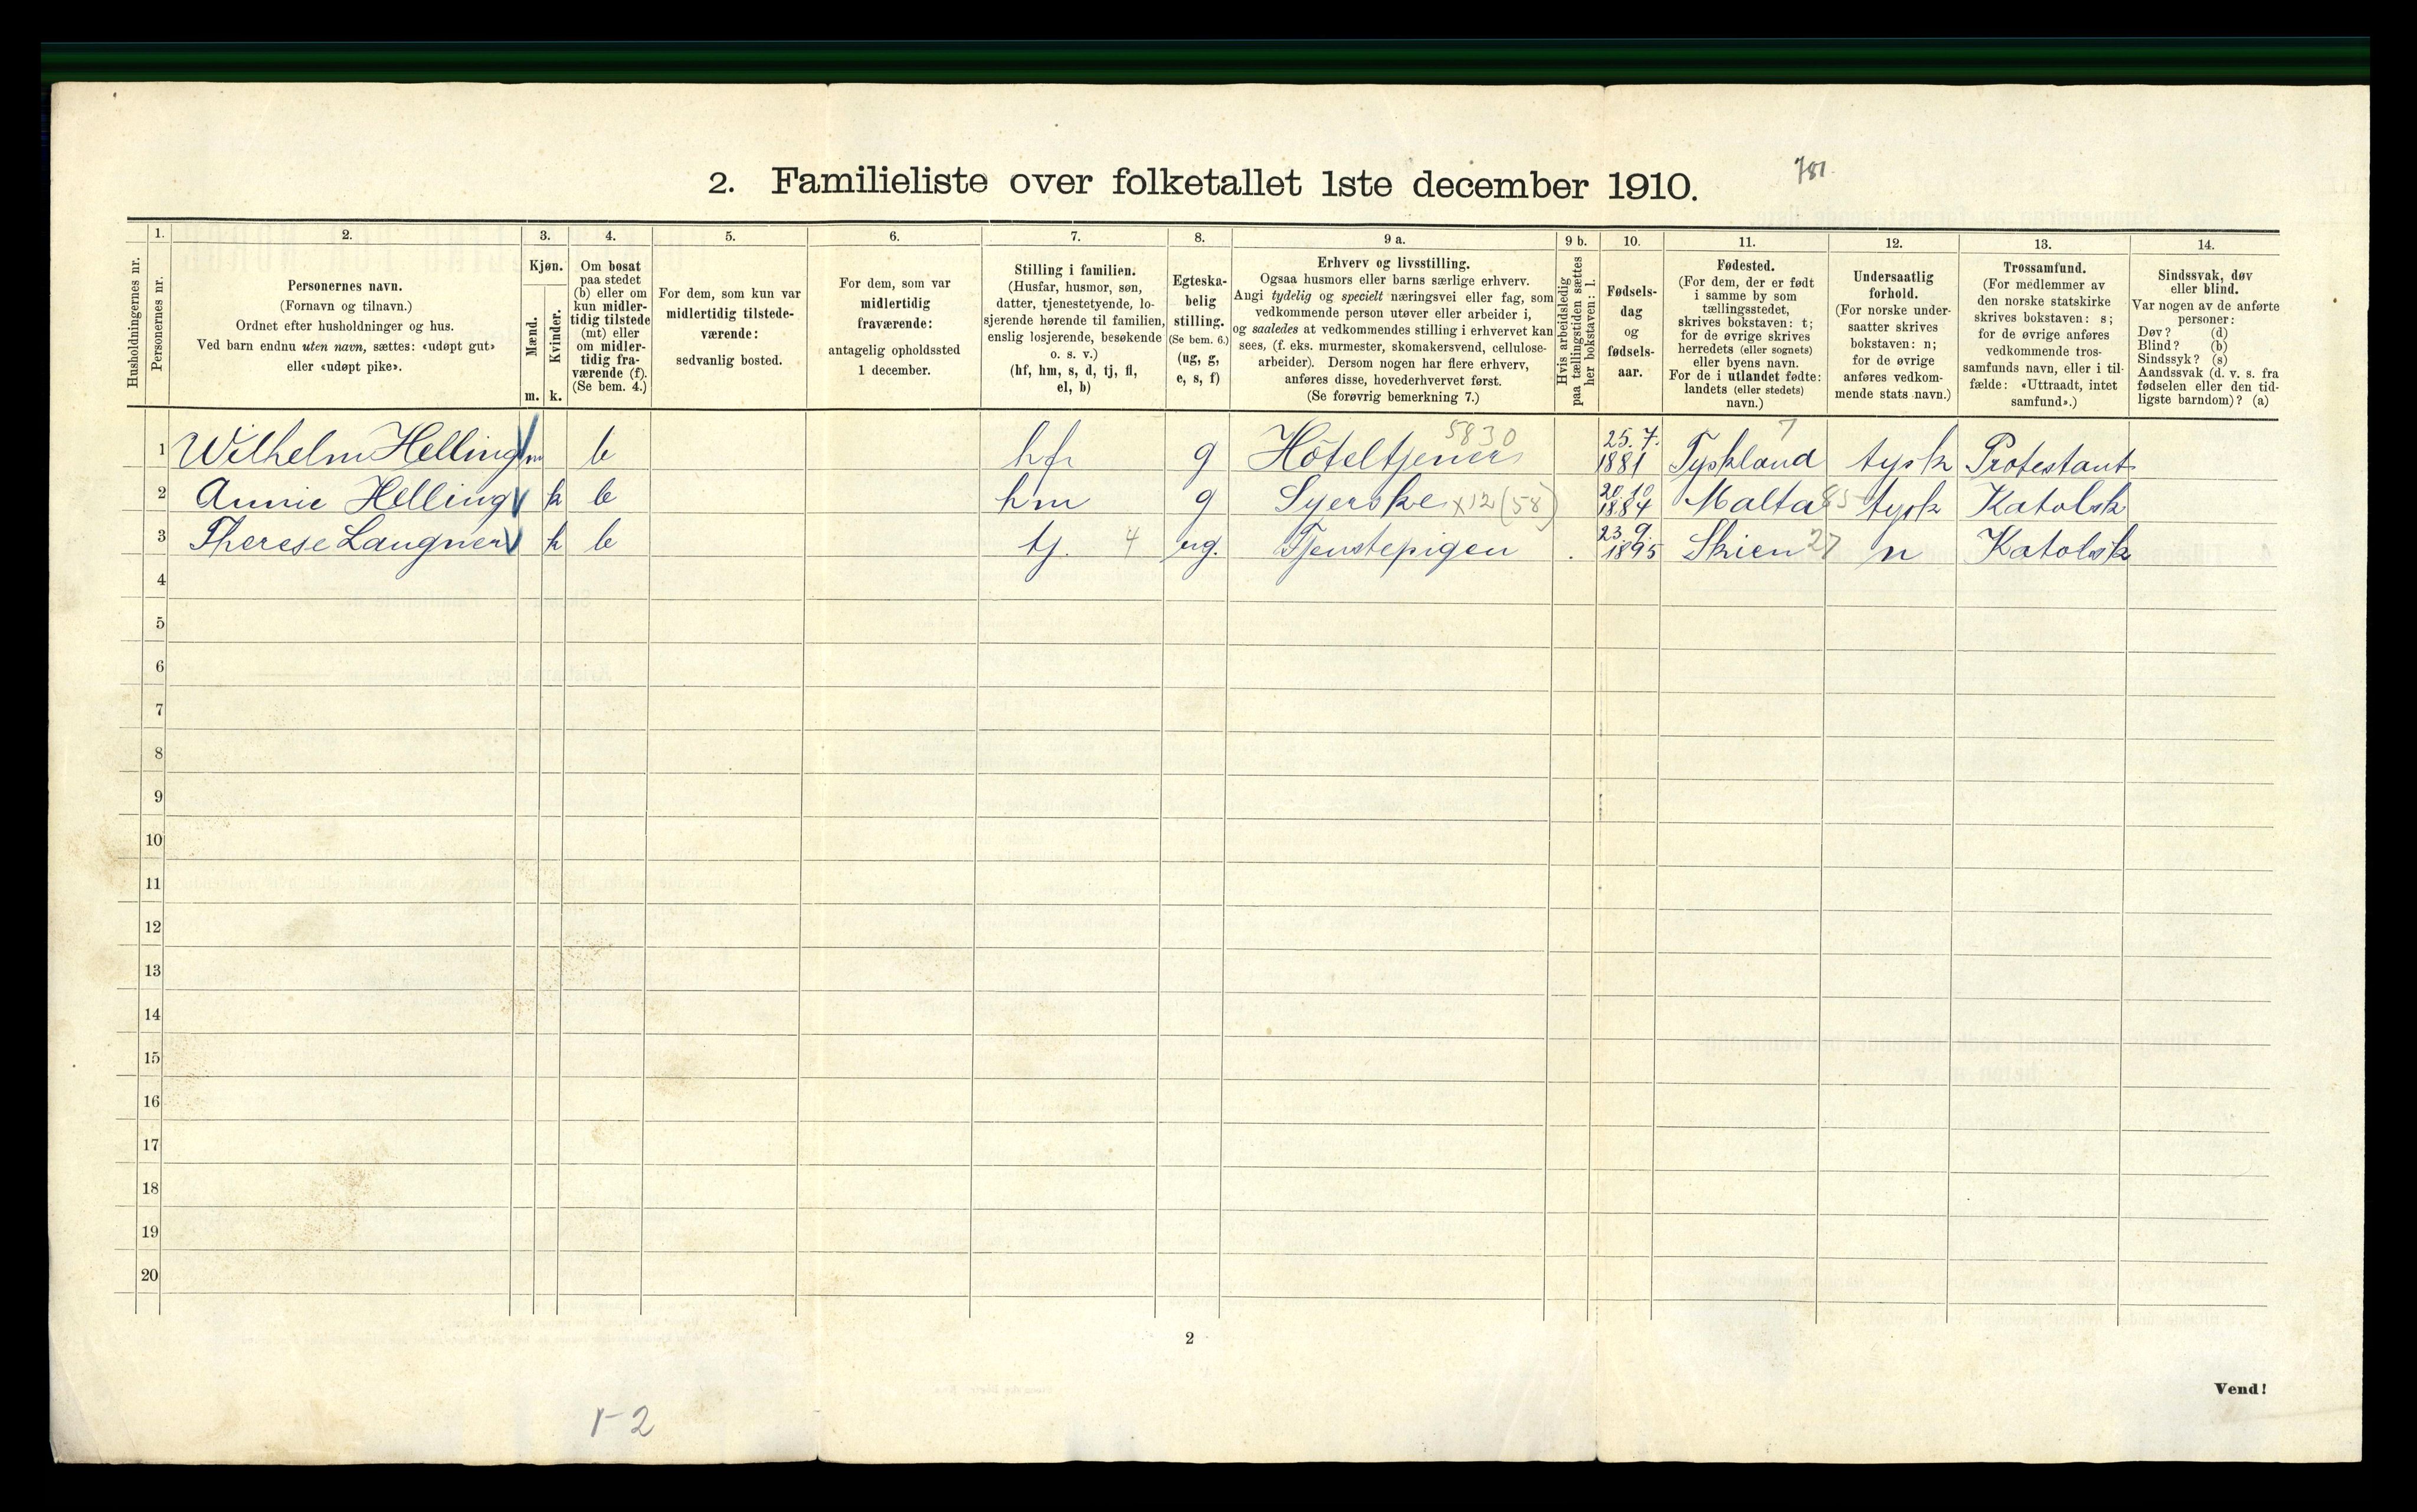 2. Familieliste over folketallet 1ste december 1910.
781.
1. 2. 3. 4. 5. 6. 7. 8. 9 a. 9 b. 10. 11. 12. 13. 14.
Husholdningernes nr.
Personernes nr.
Personernes navn.
(Fornavn og tilnavn.)
Ordnet efter husholdninger og hus.
Ved barn endnu uten navn, sættes: «udøpt gut»
eller «udøpt pike».
Kjøn.
Mænd.
Kvinder.
m. k.
Om bosat
paa stedet
(b) eller om
kun midler-
tidig tilstede
(mt) eller
om midler-
tidig fra-
værende (f).
(Se bem. 4.)
For dem, som kun var
midlertidig tilstede-
værende:
sedvanlig bosted.
For dem, som var
midlertidig
fraværende:
antagelig opholdssted
1 december.
Stilling i familien.
(Husfar, husmor, søn,
datter, tjenestetyende, lo-
sjerende hørende til familien,
enslig losjerende, besøkende
o. s. v.)
(hf, hm, s, d, tj, fl,
el, b)
Egteska-
belig
stilling.
(Se bem. 6.)
(ug, g,
e, s, f)
Erhverv og livsstilling.
Ogsaa husmors eller barns særlige erhverv.
Angi tydelig og specielt næringsvei eller fag, som
vedkommende person utøver eller arbeider i,
og saaledes at vedkommendes stilling i erhvervet kan
sees, (f. eks. murmester, skomakersvend, cellulose-
arbeider). Dersom nogen har flere erhverv,
anføres disse, hovederhvervet først.
(Se forøvrig bemerkning 7.)
Hvis arbeidsledig
paa tællingstiden sættes
her bokstaven: l.
Fødsels-
dag
og
fødsels-
aar.
Fødested.
(For dem, der er født
i samme by som
tællingsstedet,
skrives bokstaven: t;
for de øvrige skrives
herredets (eller sognets)
eller byens navn.
For de i utlandet fødte:
landets (eller stedets)
navn.)
Undersaatlig
forhold.
(For norske under-
saatter skrives
bokstaven: n;
for de øvrige
anføres vedkom-
mende stats navn.)
Trossamfund.
(For medlemmer av
den norske statskirke
skrives bokstaven: s;
for de øvrige anføres
vedkommende tros-
samfunds navn, eller i til-
fælde: «Uttraadt, intet
samfund».)
Sindssvak, døv
eller blind.
Var nogen av de anførte
personer:
Døv? (d)
Blind? (b)
Sindssyk? (s)
Aandssvak (d. v. s. fra
fødselen eller den tid-
ligste barndom)? (a)
1 Wilhelm Helling m b hf g Hôteltjener 5830 25.7. 1881 Tyskland 7 tysk Protestant
2 Annie Helling k b hm g Syerske x12 (58) 20.10 1884 Malta 85 tysk Katolsk
3 Therese Langner k b tj. 4 ug. Tjenstepigen . 23.9. 1895 Skien 27 n Katolsk
4
5
6
7
8
9
10
11
12
13
14
15
16
17
18
19
20
2
Vend!
1-2